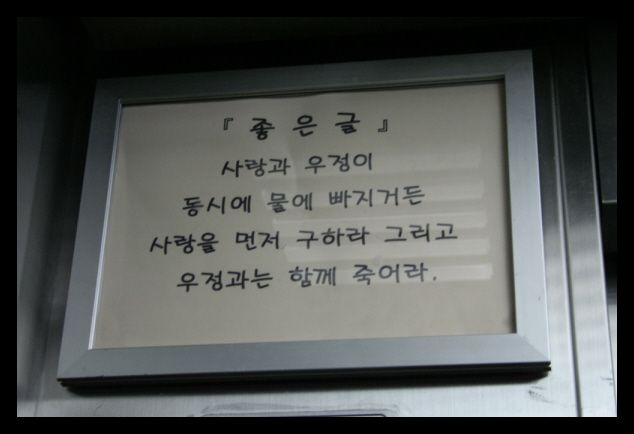 『좋은글』
사랑과 우정이
동시에 물에 빠지거든
사랑을 먼저 구하라 그리고
우정과는 함께 죽어라.